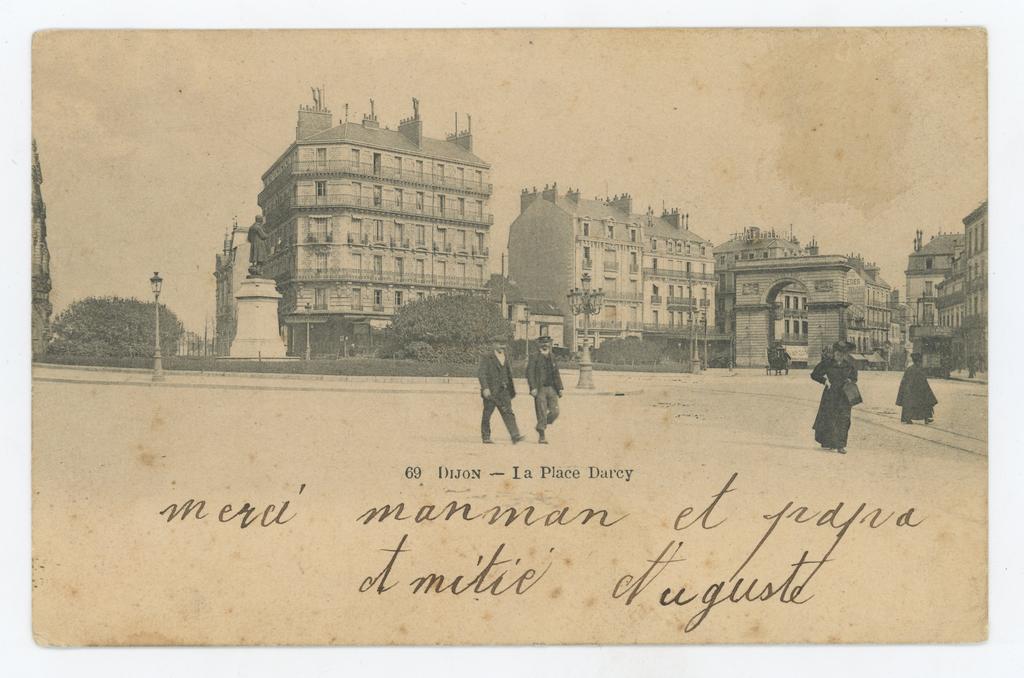 69 DIJON — La Place Darcy
merci manman et papa
Amitié Auguste